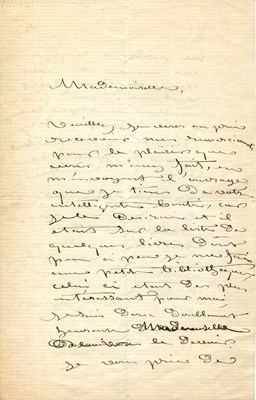 Mademoiselle,
Veuillez je vous en prie
recevoir mes remerciements
pour le plaisir que
vous m'avez fait, en
m'envoyant l'ouvrage
que je tiens de votre
intelligente bonté, car
je le désirais et il
était sur la liste de
quelques livres dont
peu à peu je me fais
une petite bibliothèque,
celui ci étant des plus
intéressant pour moi
je suis donc doublement
heureuse Mademoiselle
de le devoir
je vous prie de